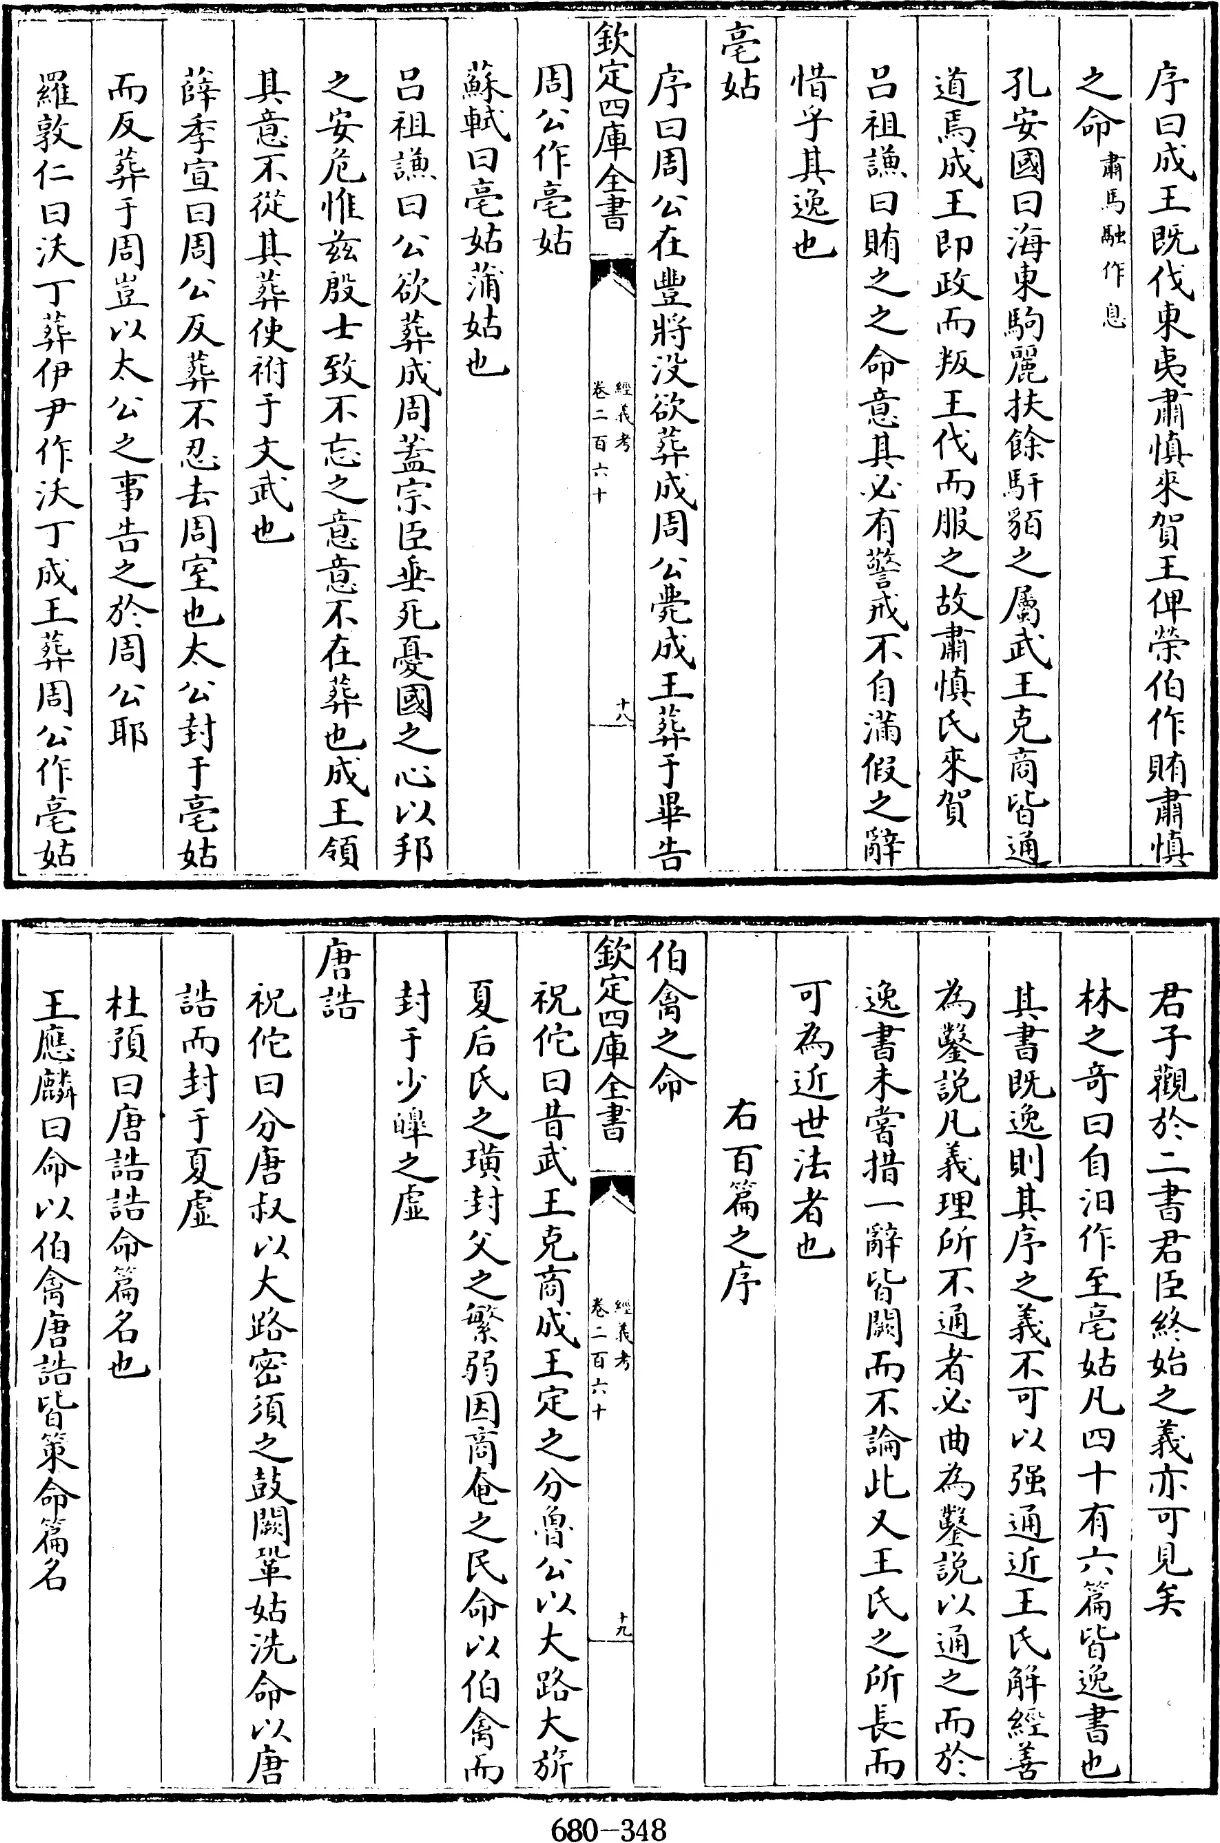 序曰成王既伐東夷肅慎來賀王俾榮伯作賄肅慎
之命肅馬融作息
孔安國曰海東駒麗扶餘馯貊之屬武王克商皆通
道焉成王即政而叛王伐而服之故肅慎氏來賀
呂祖謙曰賄之之命意其必有警戒不自滿假之辭
惜乎其逸也
亳姑
序曰周公在豐將没欲葬成周公薨成王葬于畢告
欽定四庫全書
經義考
卷二百六十
十八
周公作亳姑
蘇軾曰亳姑蒲姑也
呂祖謙曰公欲葬成周蓋宗臣垂死憂國之心以邦
之安危惟兹殷士致不忘之意意不在葬也成王領
其意不從其葬使祔于文武也
薛季宣曰周公反葬不忍去周室也太公封于亳姑
而反葬于周豈以太公之事告之於周公耶
羅敦仁曰沃丁葬伊尹作沃丁成王葬周公作亳姑
君子觀於二書君臣終始之義亦可見矣
林之奇曰自汨作至亳姑凡四十有六篇皆逸書也
其書既逸則其序之義不可以强通近王氏解經善
為鑿説凡義理所不通者必曲為鑿説以通之而於
逸書未嘗措一辭皆闕而不論此又王氏之所長而
可為近世法者也
右百篇之序
伯禽之命
欽定四庫全書
經義考
卷二百六十
十九
祝佗曰昔武王克商成王定之分魯公以大路大旂
夏后氏之璜封父之繁弱因商奄之民命以伯禽而
封于少皞之虛
唐誥
祝佗曰分唐叔以大路密須之鼓闕鞏姑洗命以唐
誥而封于夏虛
杜預曰唐誥誥命篇名也
王應麟曰命以伯禽唐誥皆策命篇名
680-348